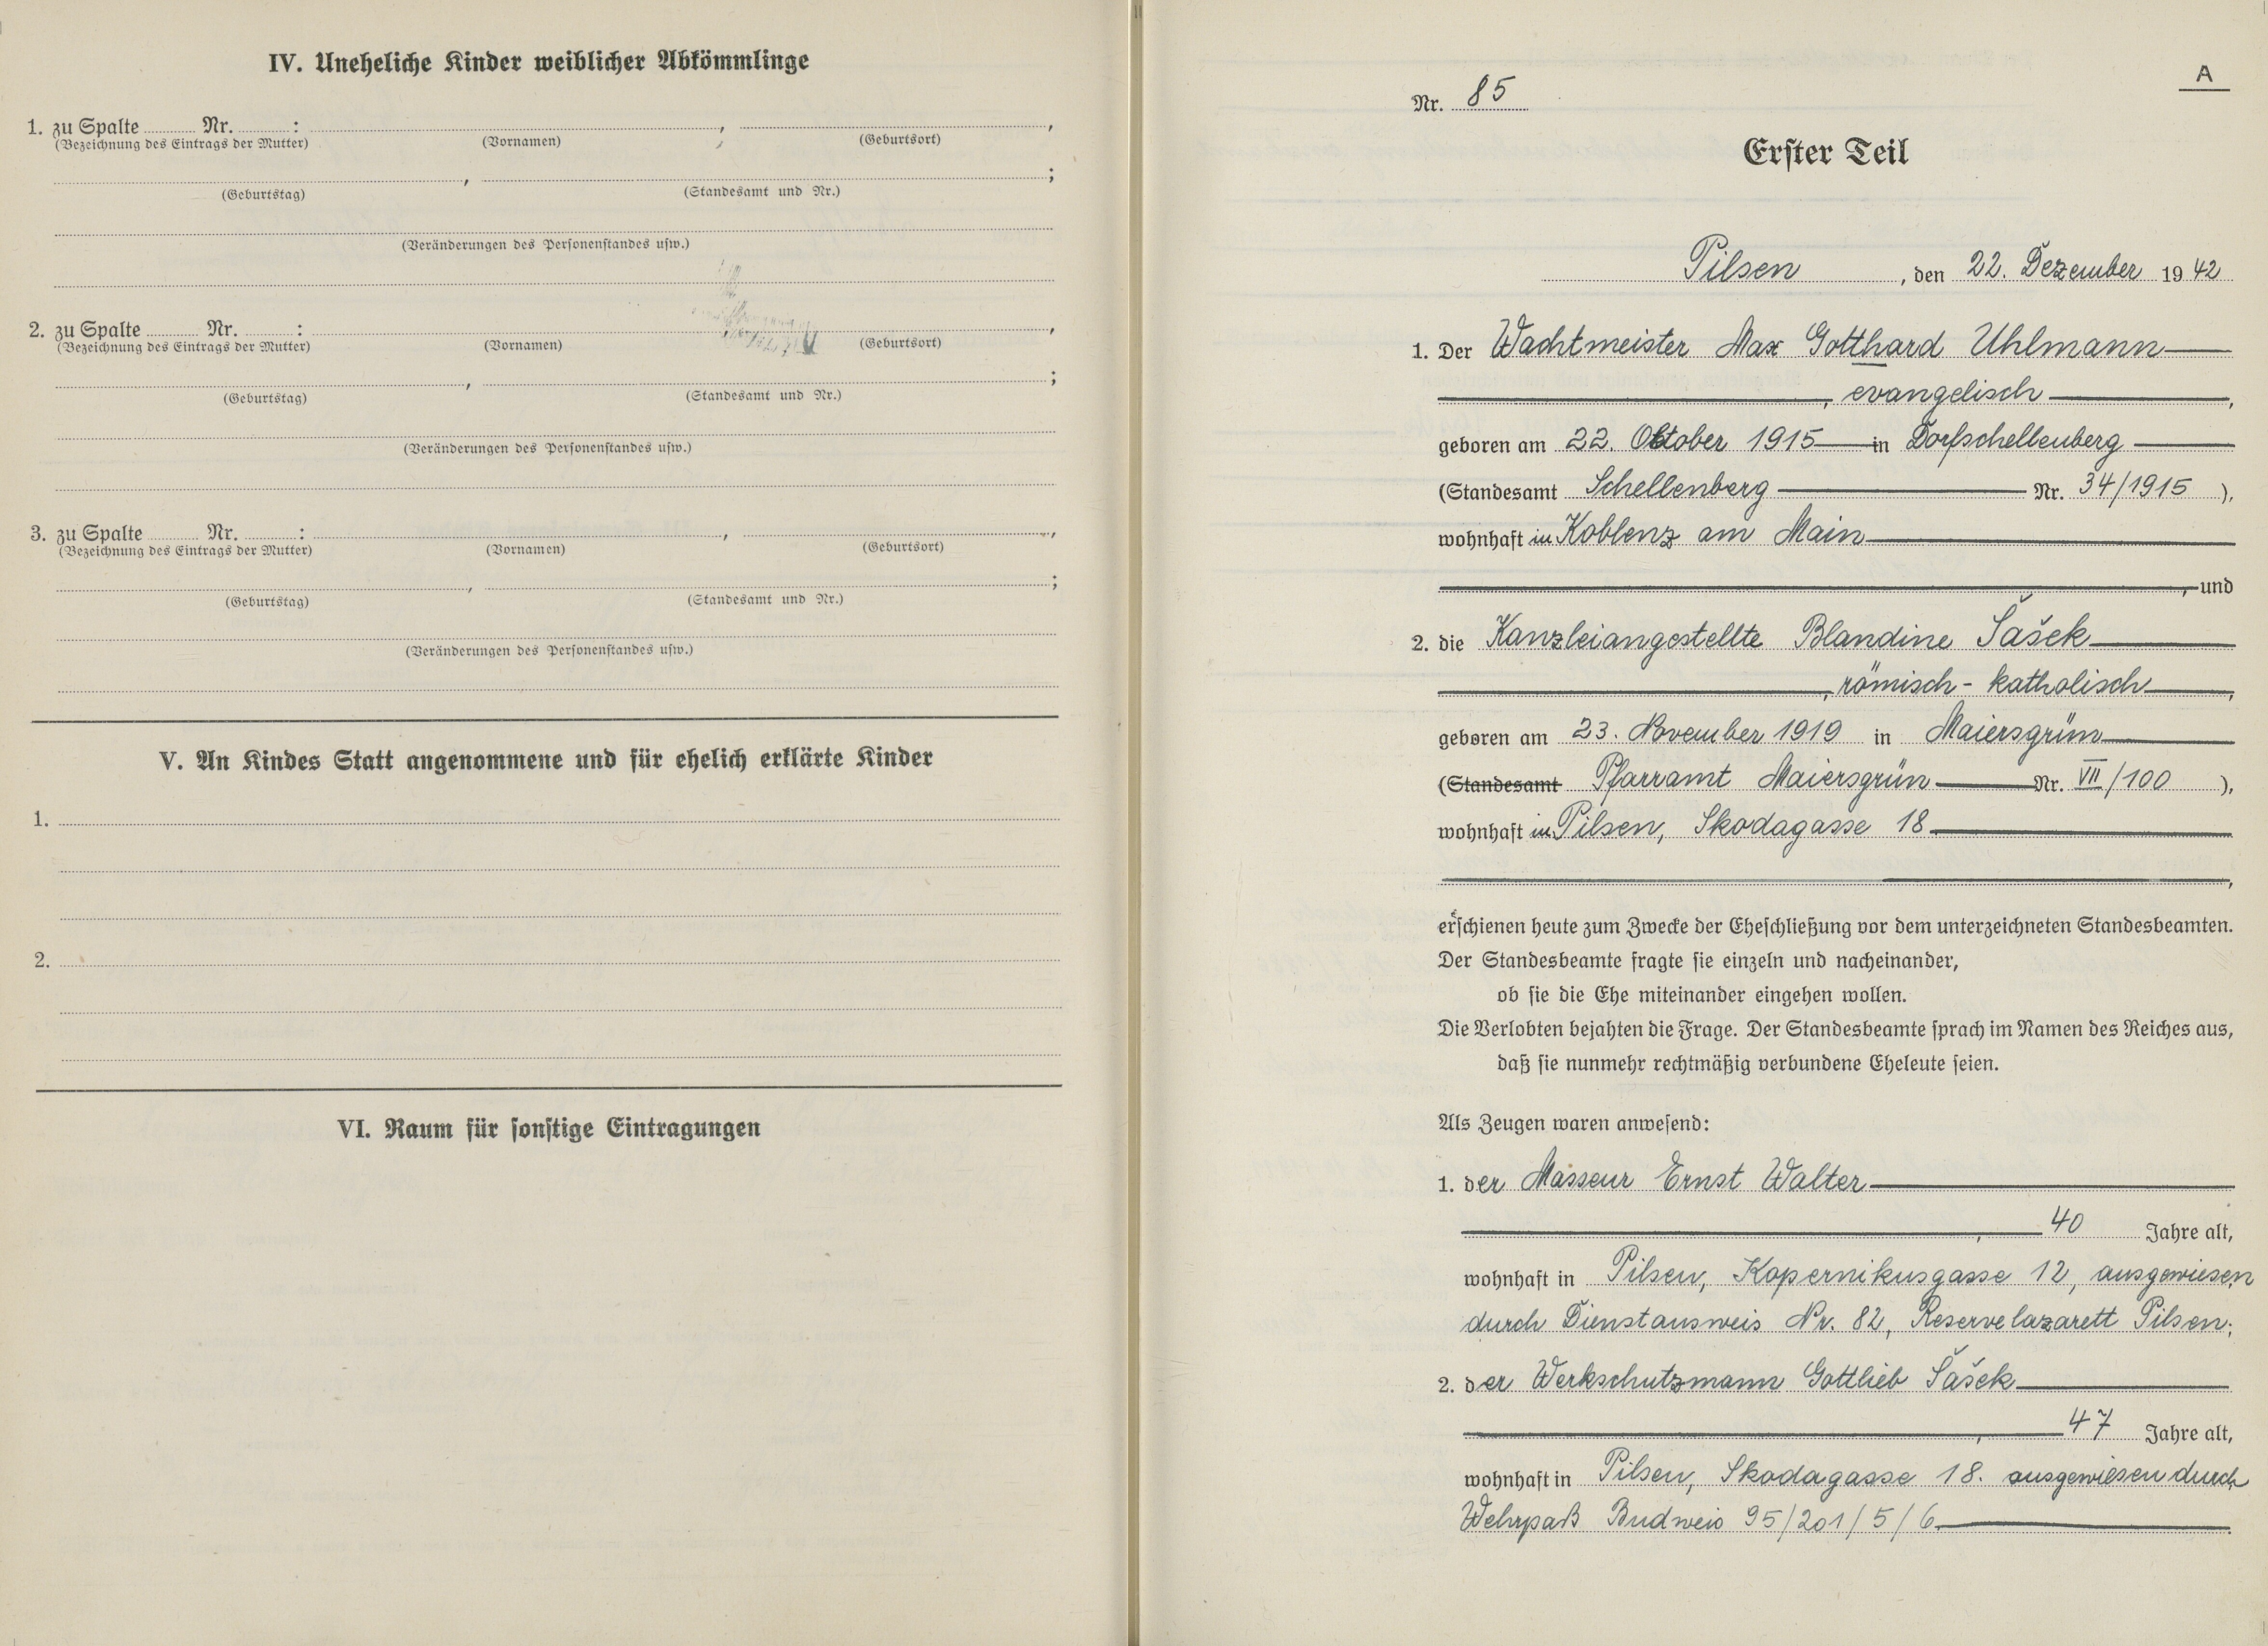 IV. Uneheliche Kinder weiblicher Abkömmlinge
1. zu Spalte Nr. : , ,
(Bezeichnung des Eintrags der Mutter) (Vornamen) (Geburtsort)
, ;
(Geburtstag) (Standesamt und Nr.)
(Veränderungen des Personenstandes usw.)
2. zu Spalte Nr. : , ,
(Bezeichnung des Eintrags der Mutter) (Vornamen) (Geburtsort)
, ;
(Geburtstag) (Standesamt und Nr.)
(Veränderungen des Personenstandes usw.)
3. zu Spalte Nr. : , ,
(Bezeichnung des Eintrags der Mutter) (Vornamen) (Geburtsort)
, ;
(Geburtstag) (Standesamt und Nr.)
(Veränderungen des Personenstandes usw.)
V. An Kindes Statt angenommene und für ehelich erklärte Kinder
1.
2.
VI. Raum für sonstige Eintragungen
A
Nr. 85
Erster Teil
Pilsen, den 22. Dezember 1942
1. Der Wachtmeister Max Gotthard Uhlmann
, evangelisch,
geboren am 22. Oktober 1915 in Dorfschellenberg
(Standesamt Schellenberg Nr. 34/1915),
wohnhaft in Koblenz am Main
, und
2. die Kanzleiangestellte Blandine Šašek
, römisch-katholisch,
geboren am 23. November 1919 in Maiersgrün
(Standesamt Pfarramt Maiersgrün Nr. VII/100),
wohnhaft in Pilsen, Skodagasse 18
,
erschienen heute zum Zwecke der Eheschließung vor dem unterzeichneten Standesbeamten.
Der Standesbeamte fragte sie einzeln und nacheinander,
ob sie die Ehe miteinander eingehen wollen.
Die Verlobten bejahten die Frage. Der Standesbeamte sprach im Namen des Reiches aus,
daß sie nunmehr rechtmäßig verbundene Eheleute seien.
Als Zeugen waren anwesend:
1. der Masseur Ernst Walter
, 40 Jahre alt,
wohnhaft in Pilsen, Kopernikusgasse 12, ausgewiesen
durch Dienstausweis Nr. 82, Reservelazarett Pilsen;
2. der Werkschutzmann Gottlieb Šašek
, 47 Jahre alt,
wohnhaft in Pilsen, Skodagasse 18. ausgewiesen durch
Wehrpaß Budweis 95/201/5/6.